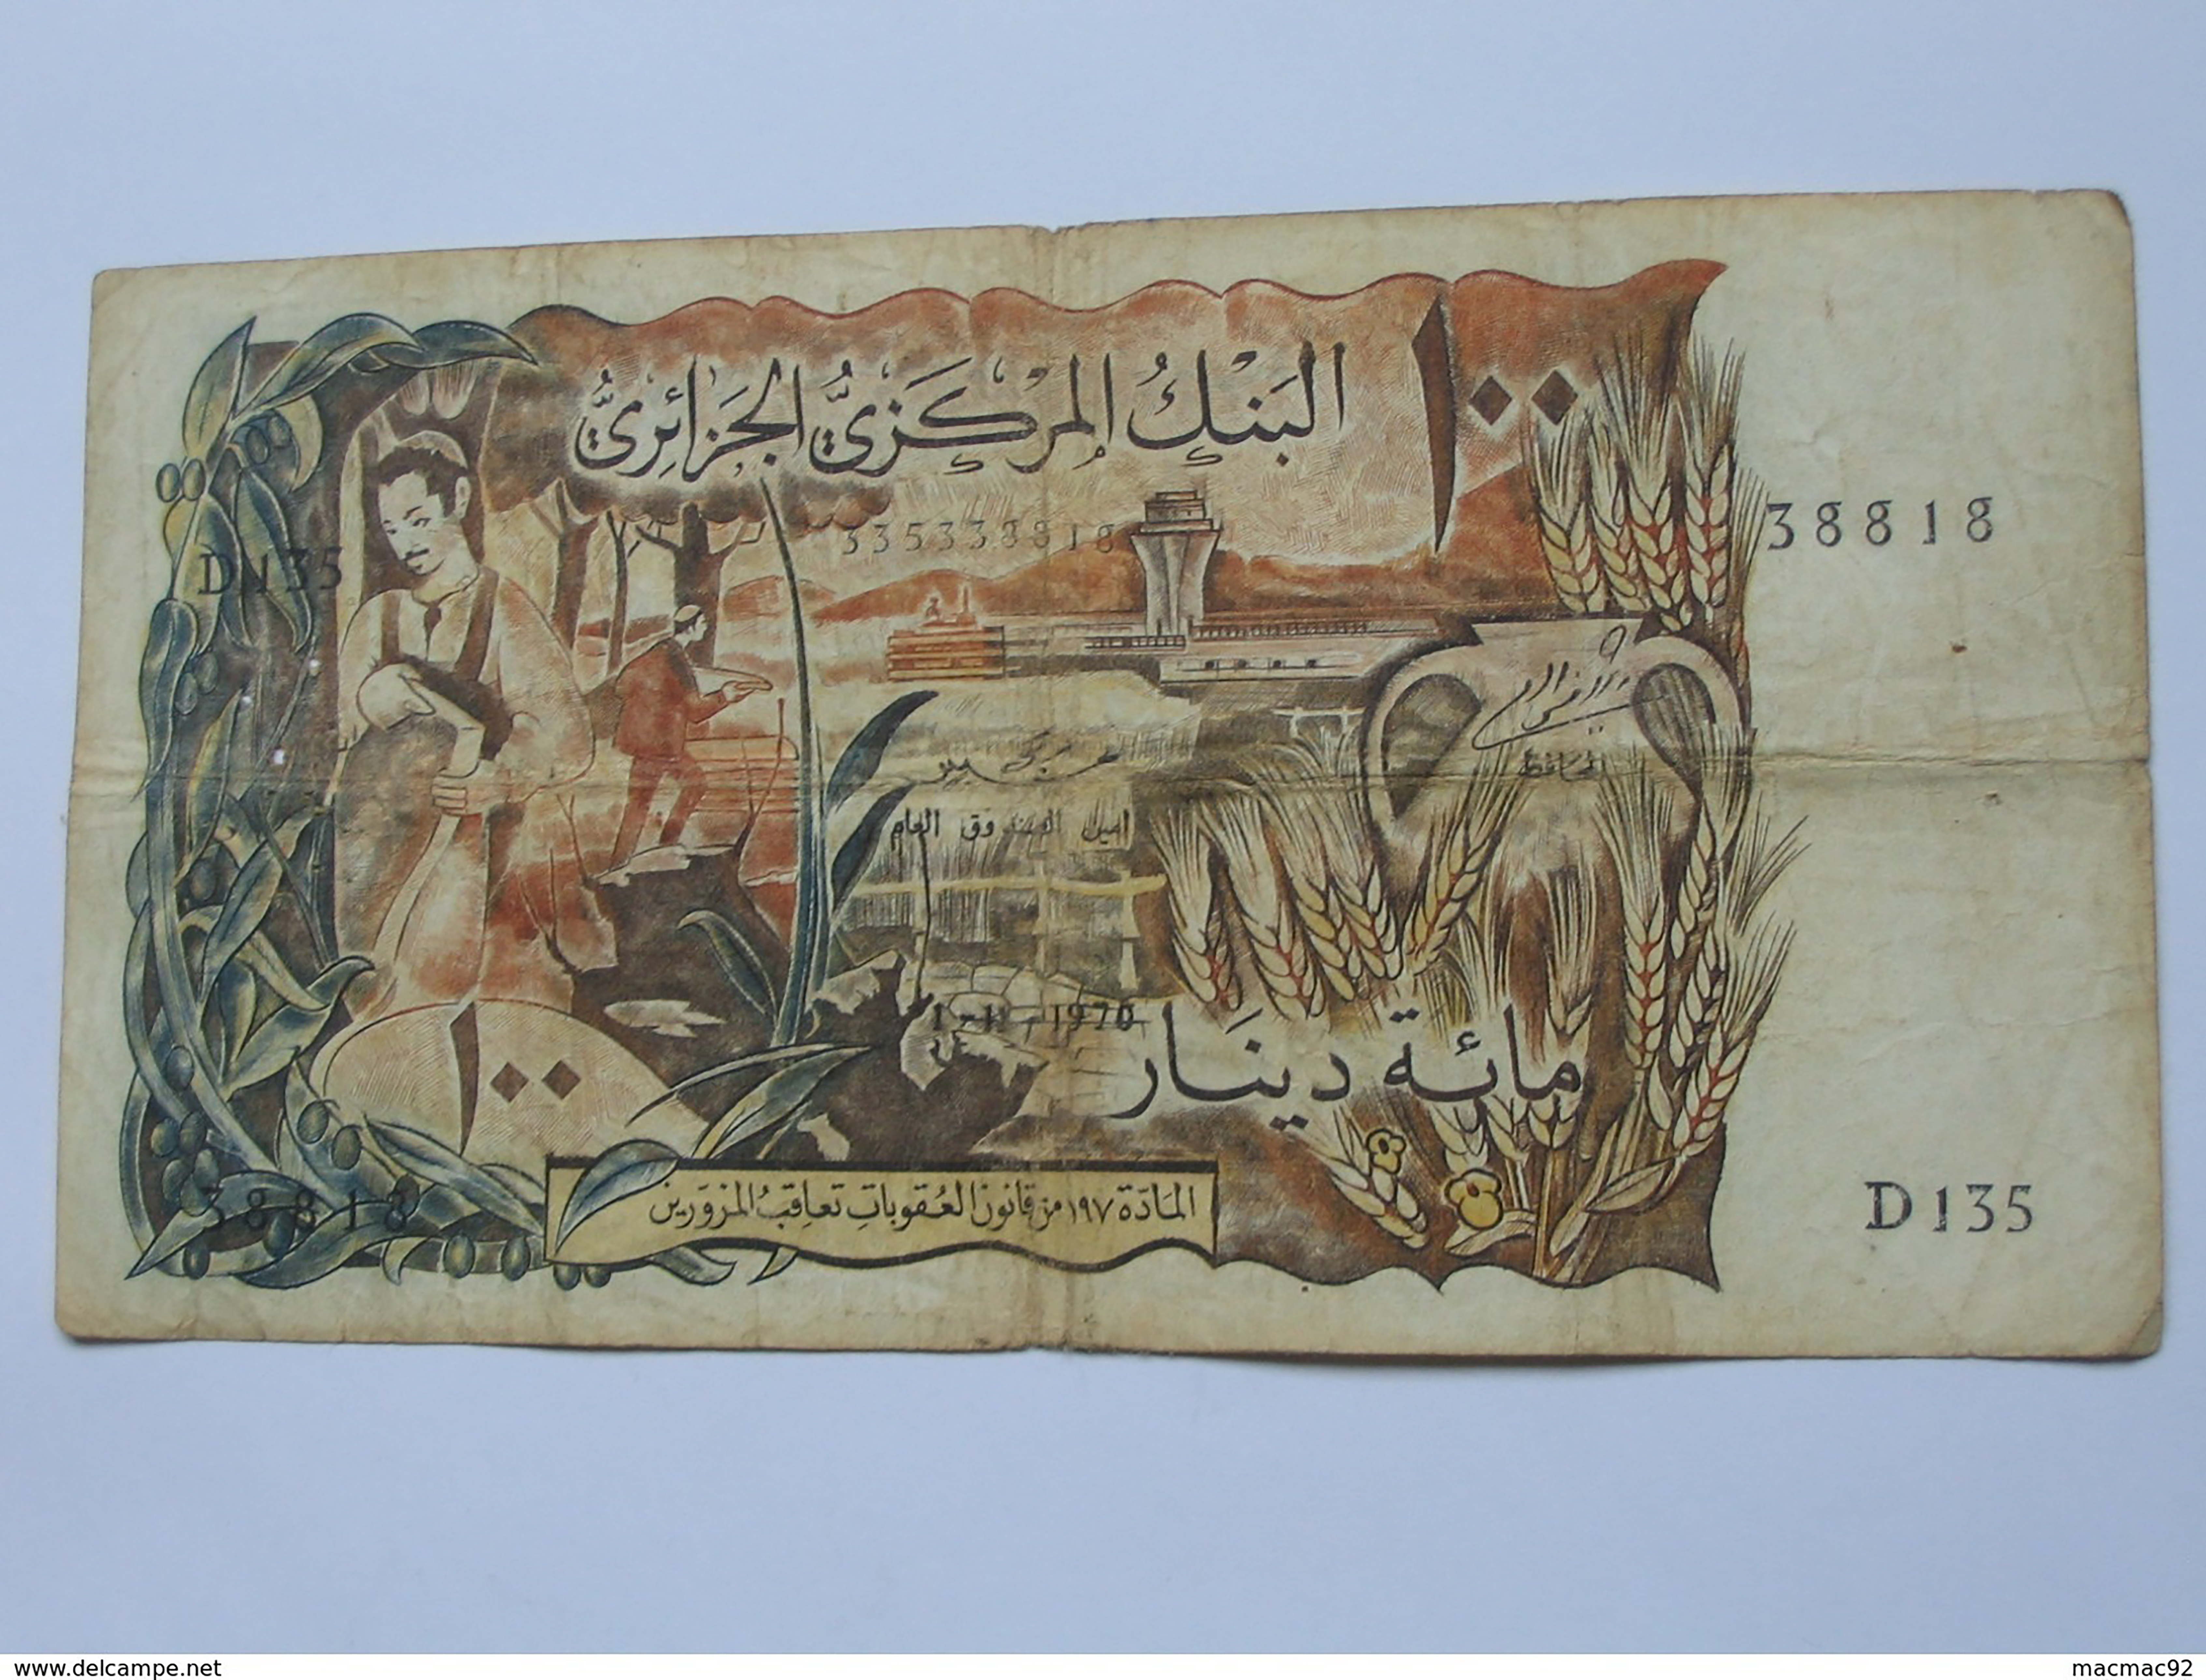 البَنْكُ المركَزيُّ الجَزائِريُّ
١٠٠
38818
335338818
D 135
المحافظ
امين الصندوق العام
1-1-1970
مائة دينَار
١٠٠
المادّة ١٩٧ من قانون العُقوباتِ تعاقبُ المزوّرين
38818
D 135
www.delcampe.net
macmac92